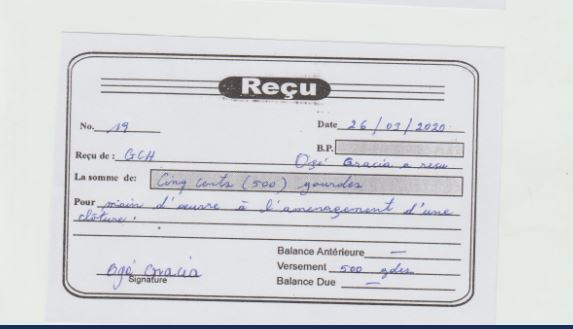 Reçu
No. 19
Date 26/03/2020
B.P.
Reçu de : GCH
Ogé Gracia a reçu
La somme de: Cinq cents (500) gourdes
Pour main d'œuvre à l'aménagement d'une
clôture.
Balance Antérieure —
Ogé Gracia
Versement 500 gdes
Signature
Balance Due —